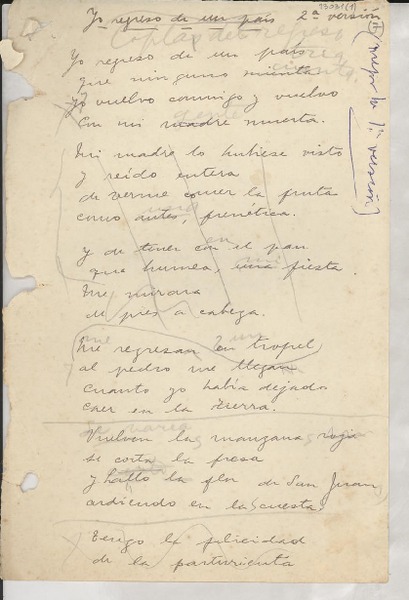 23031 (1)
Yo regreso de un país 2ª versión
(mejor la 1ª versión)
Coplas del regreso
Yo regreso de un país
que ninguno mienta
Yo vuelvo conmigo y vuelvo
con mi madre muerta.
gente
Mi madre lo hubiese visto
y reído entera
de verme comer la fruta
como antes, frenética.
Y de tener con el pan
que humea, una fiesta.
Me mirara
de pies a cabeza.
Me regresan en tropel
al pedro me llegan
cuanto yo había dejado
caer en la tierra.
Vuelven las manzanas rojas
se corta la fresa
y hallo la flor de San Juan
ardiendo en las cuestas
Tengo la felicidad
de la parturienta